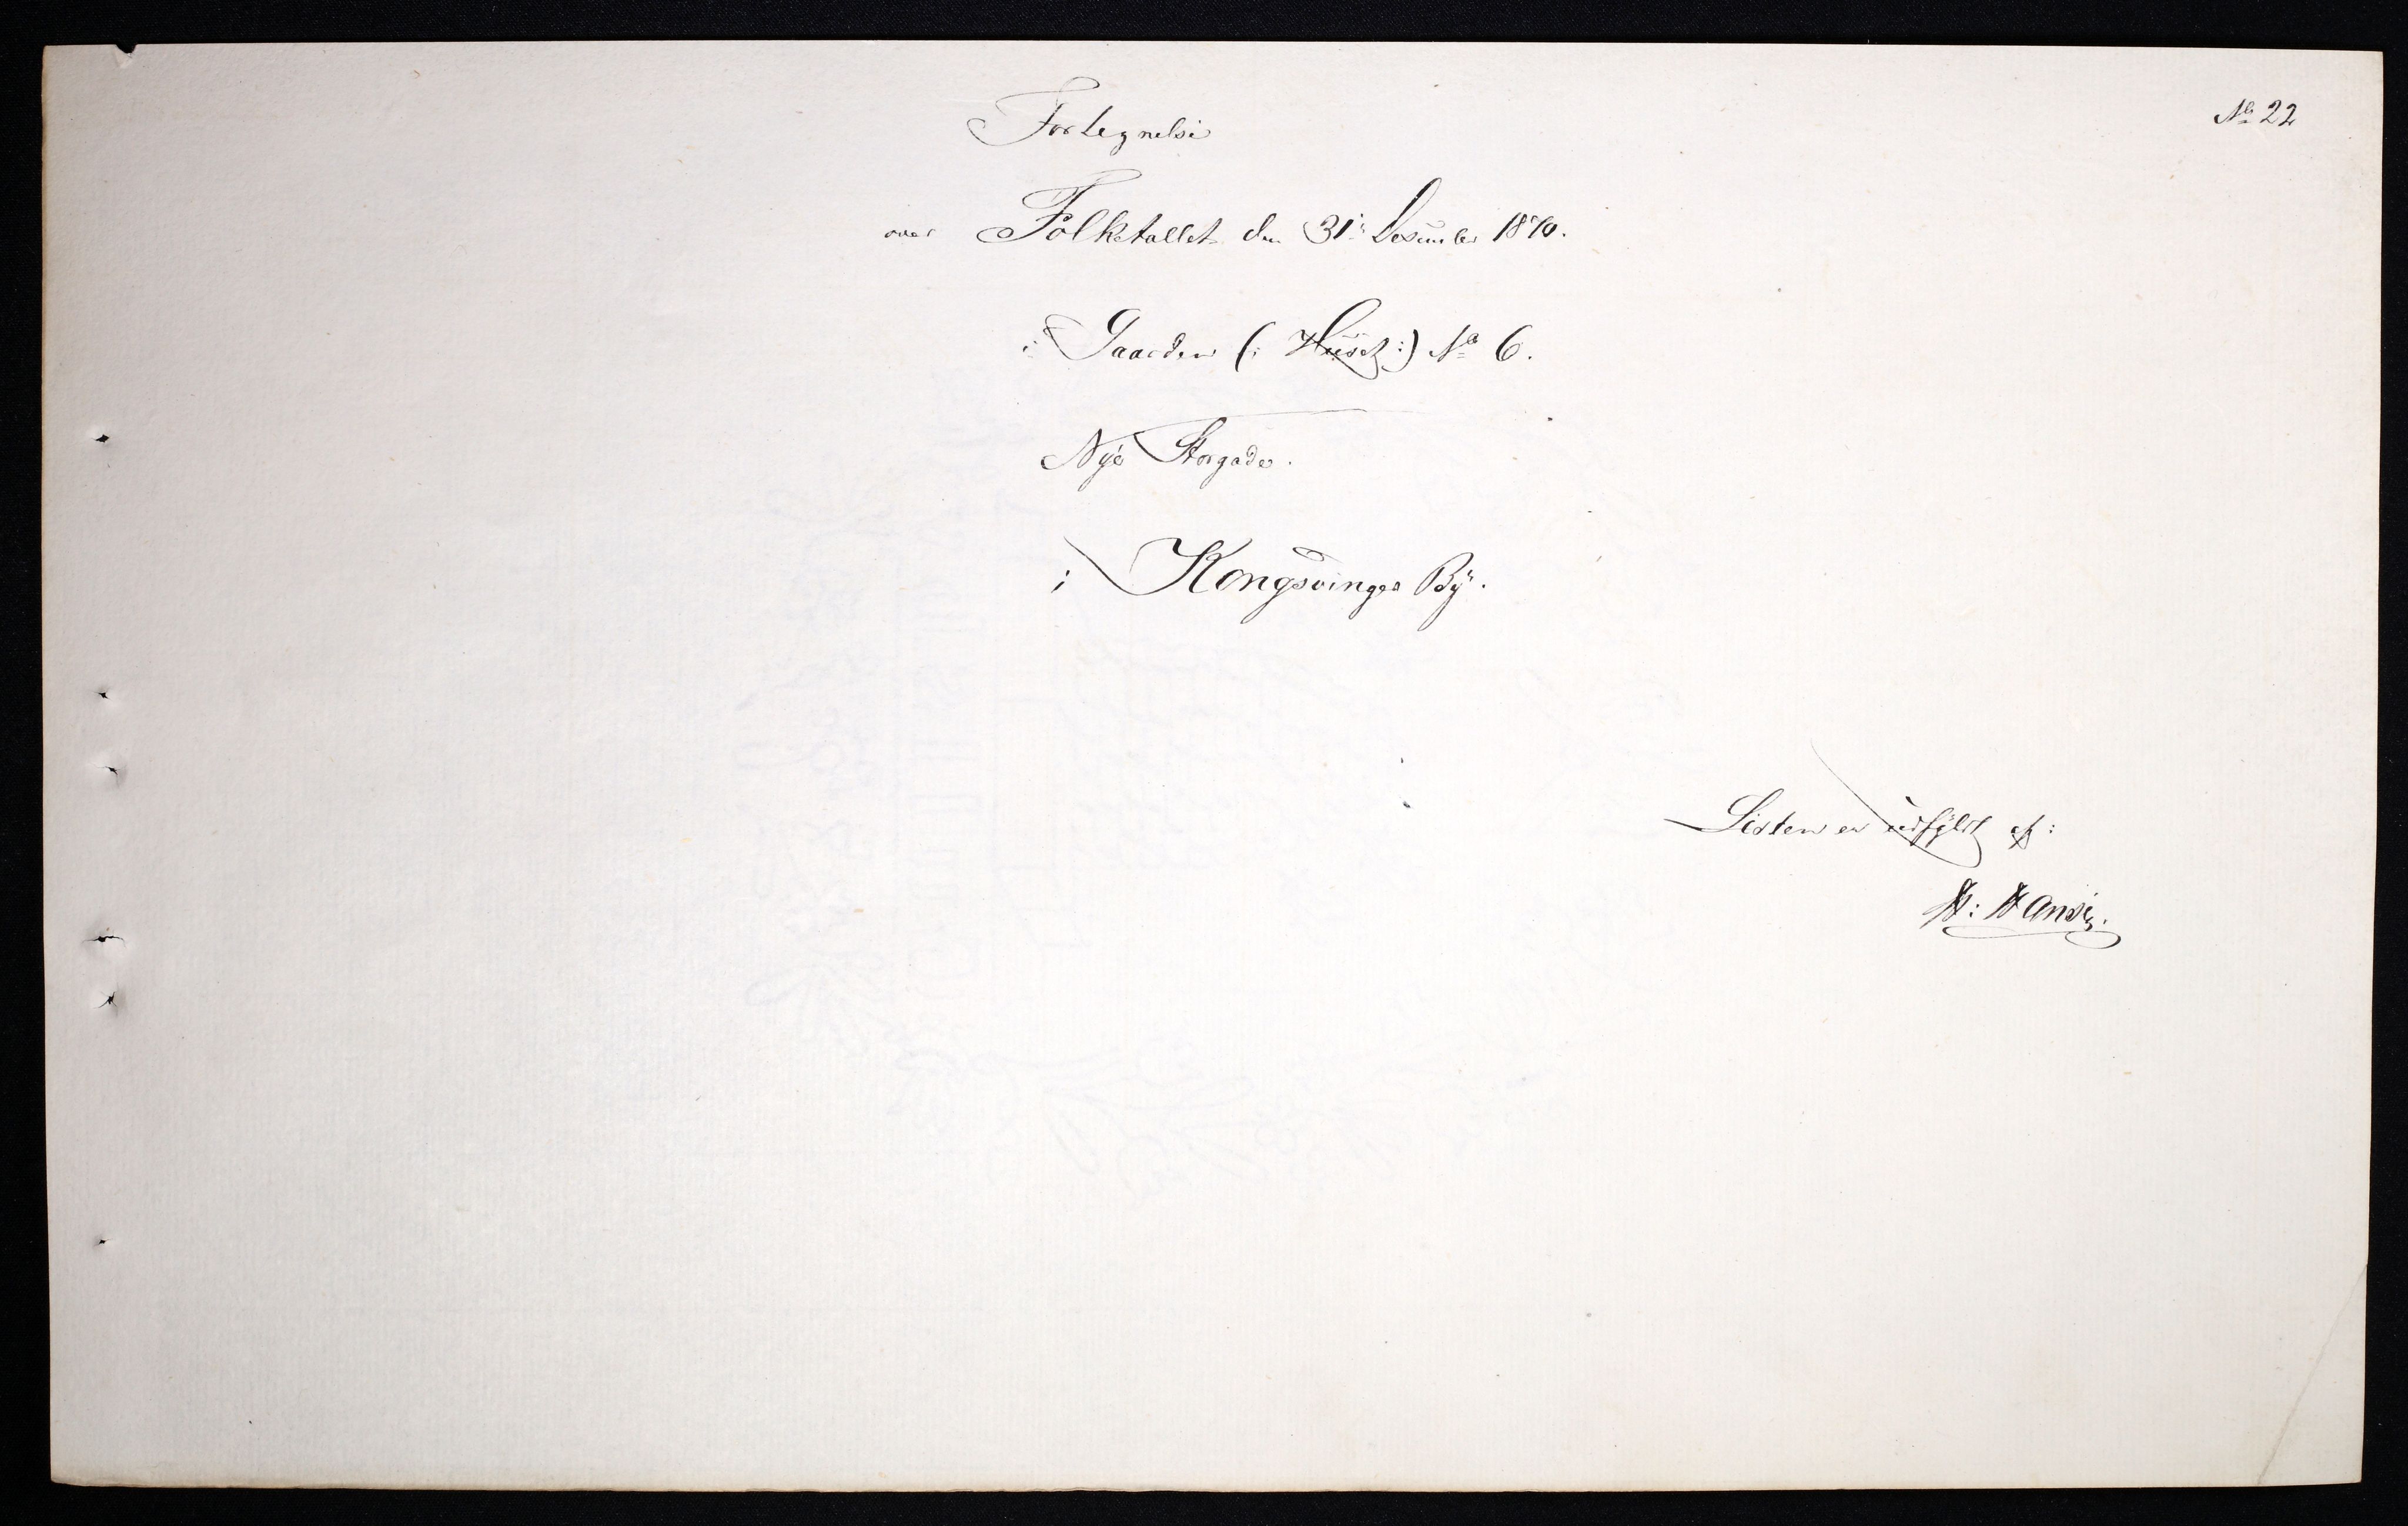 No 22
Fortegnelse
over Folketallet den 31: Desember 1870.
i Gaarden (: Huset :) No 6.
Nye Storgade.
i Kongsvinger By.
Listen er udfyldt af:
H: Hansen.